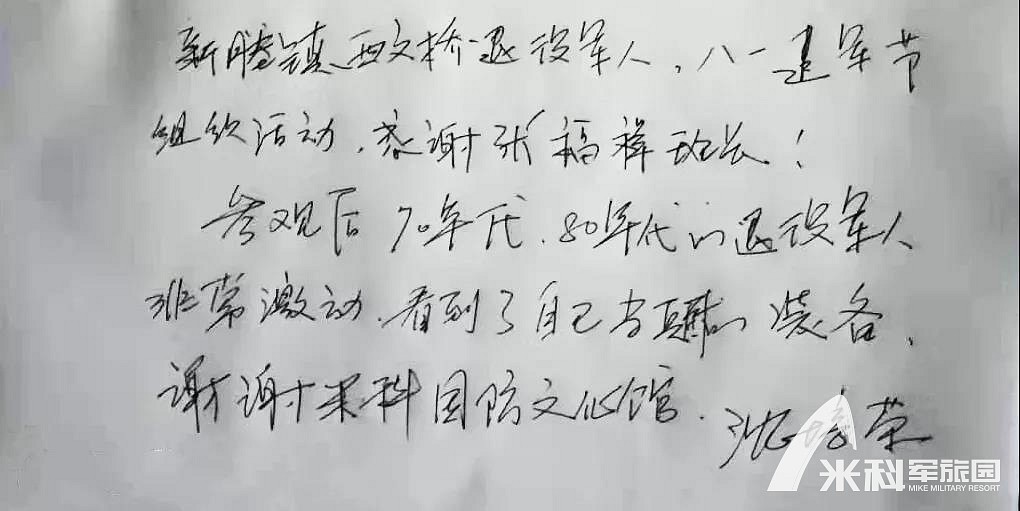 新塍镇西文桥退役军人，八一建军节
组织活动，感谢张福祥班长！
参观后70年代、80年代的退役军人
非常激动，看到了自己当的装备，
谢谢米科国防文化馆．
沈荣
米科军旅园
MIKE MILITARY RESORT